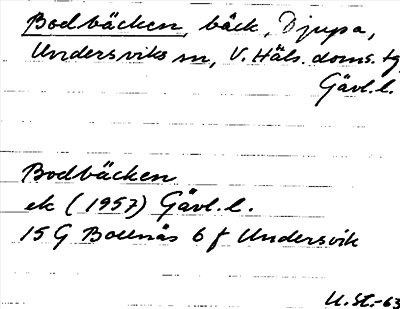 Bodbäcken, bäck, Djupa,
Undersviks sn, V. Häls. doms. tg
Gävl.l.
Bodbäcken
ek (1957) Gävl.l.
15G Bollnäs 6 f Undersvik
U.St.-63